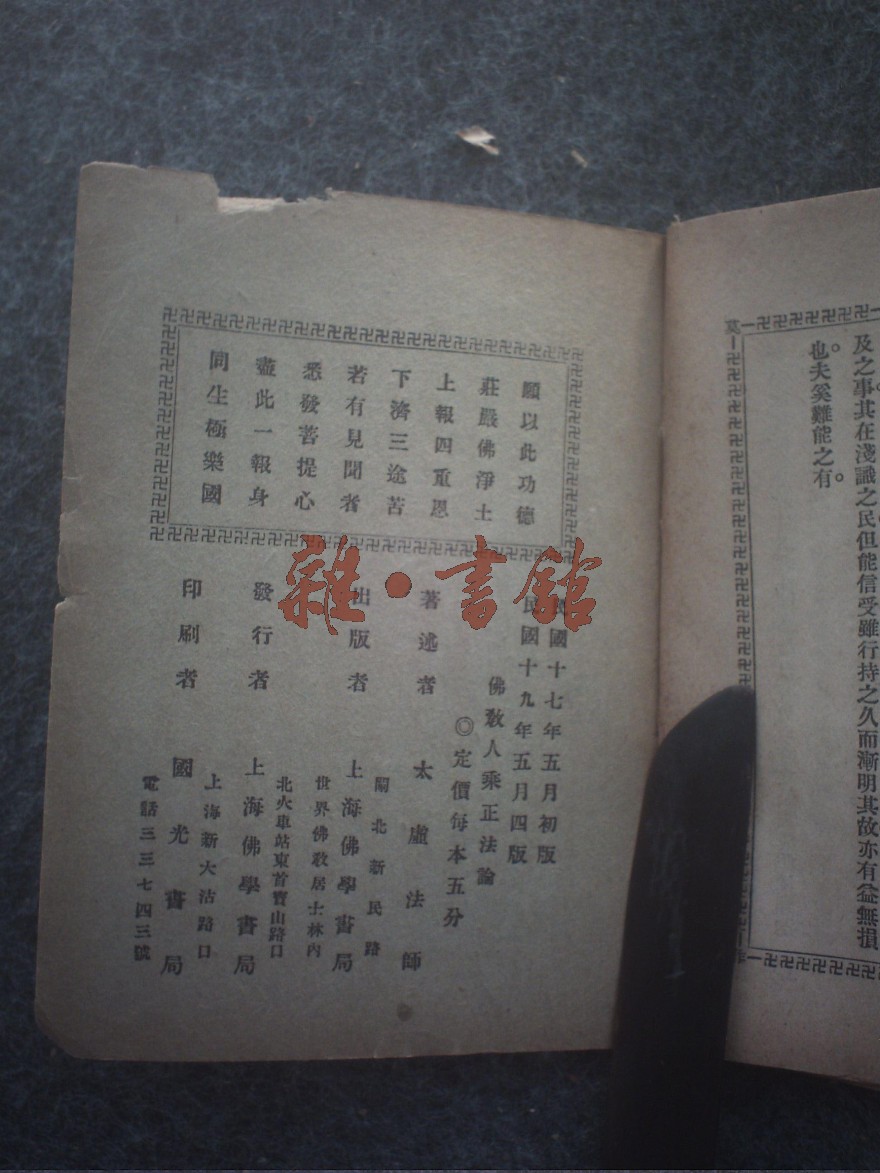 及之事其在淺識之民但能信受雖行持之久而漸明其故亦有益無損
也夫奚難能之有。
願以此功德
莊嚴佛淨土
上報四重恩
下濟三途苦
若有見聞者
悉發菩提心
盡此一報身
同生極樂國
民國十七年五月初版
民國十九年五月四版
佛教人乘正法論
◎定價每本五分
著述者 太虛法師
閘北新民路
出版者 上海佛學書局
世界佛教居士林內
北火車站東首寶山路口
發行者 上海佛學書局
上海新大沽路口
印刷者 國光書局
電話三三七四三號
雜·書館